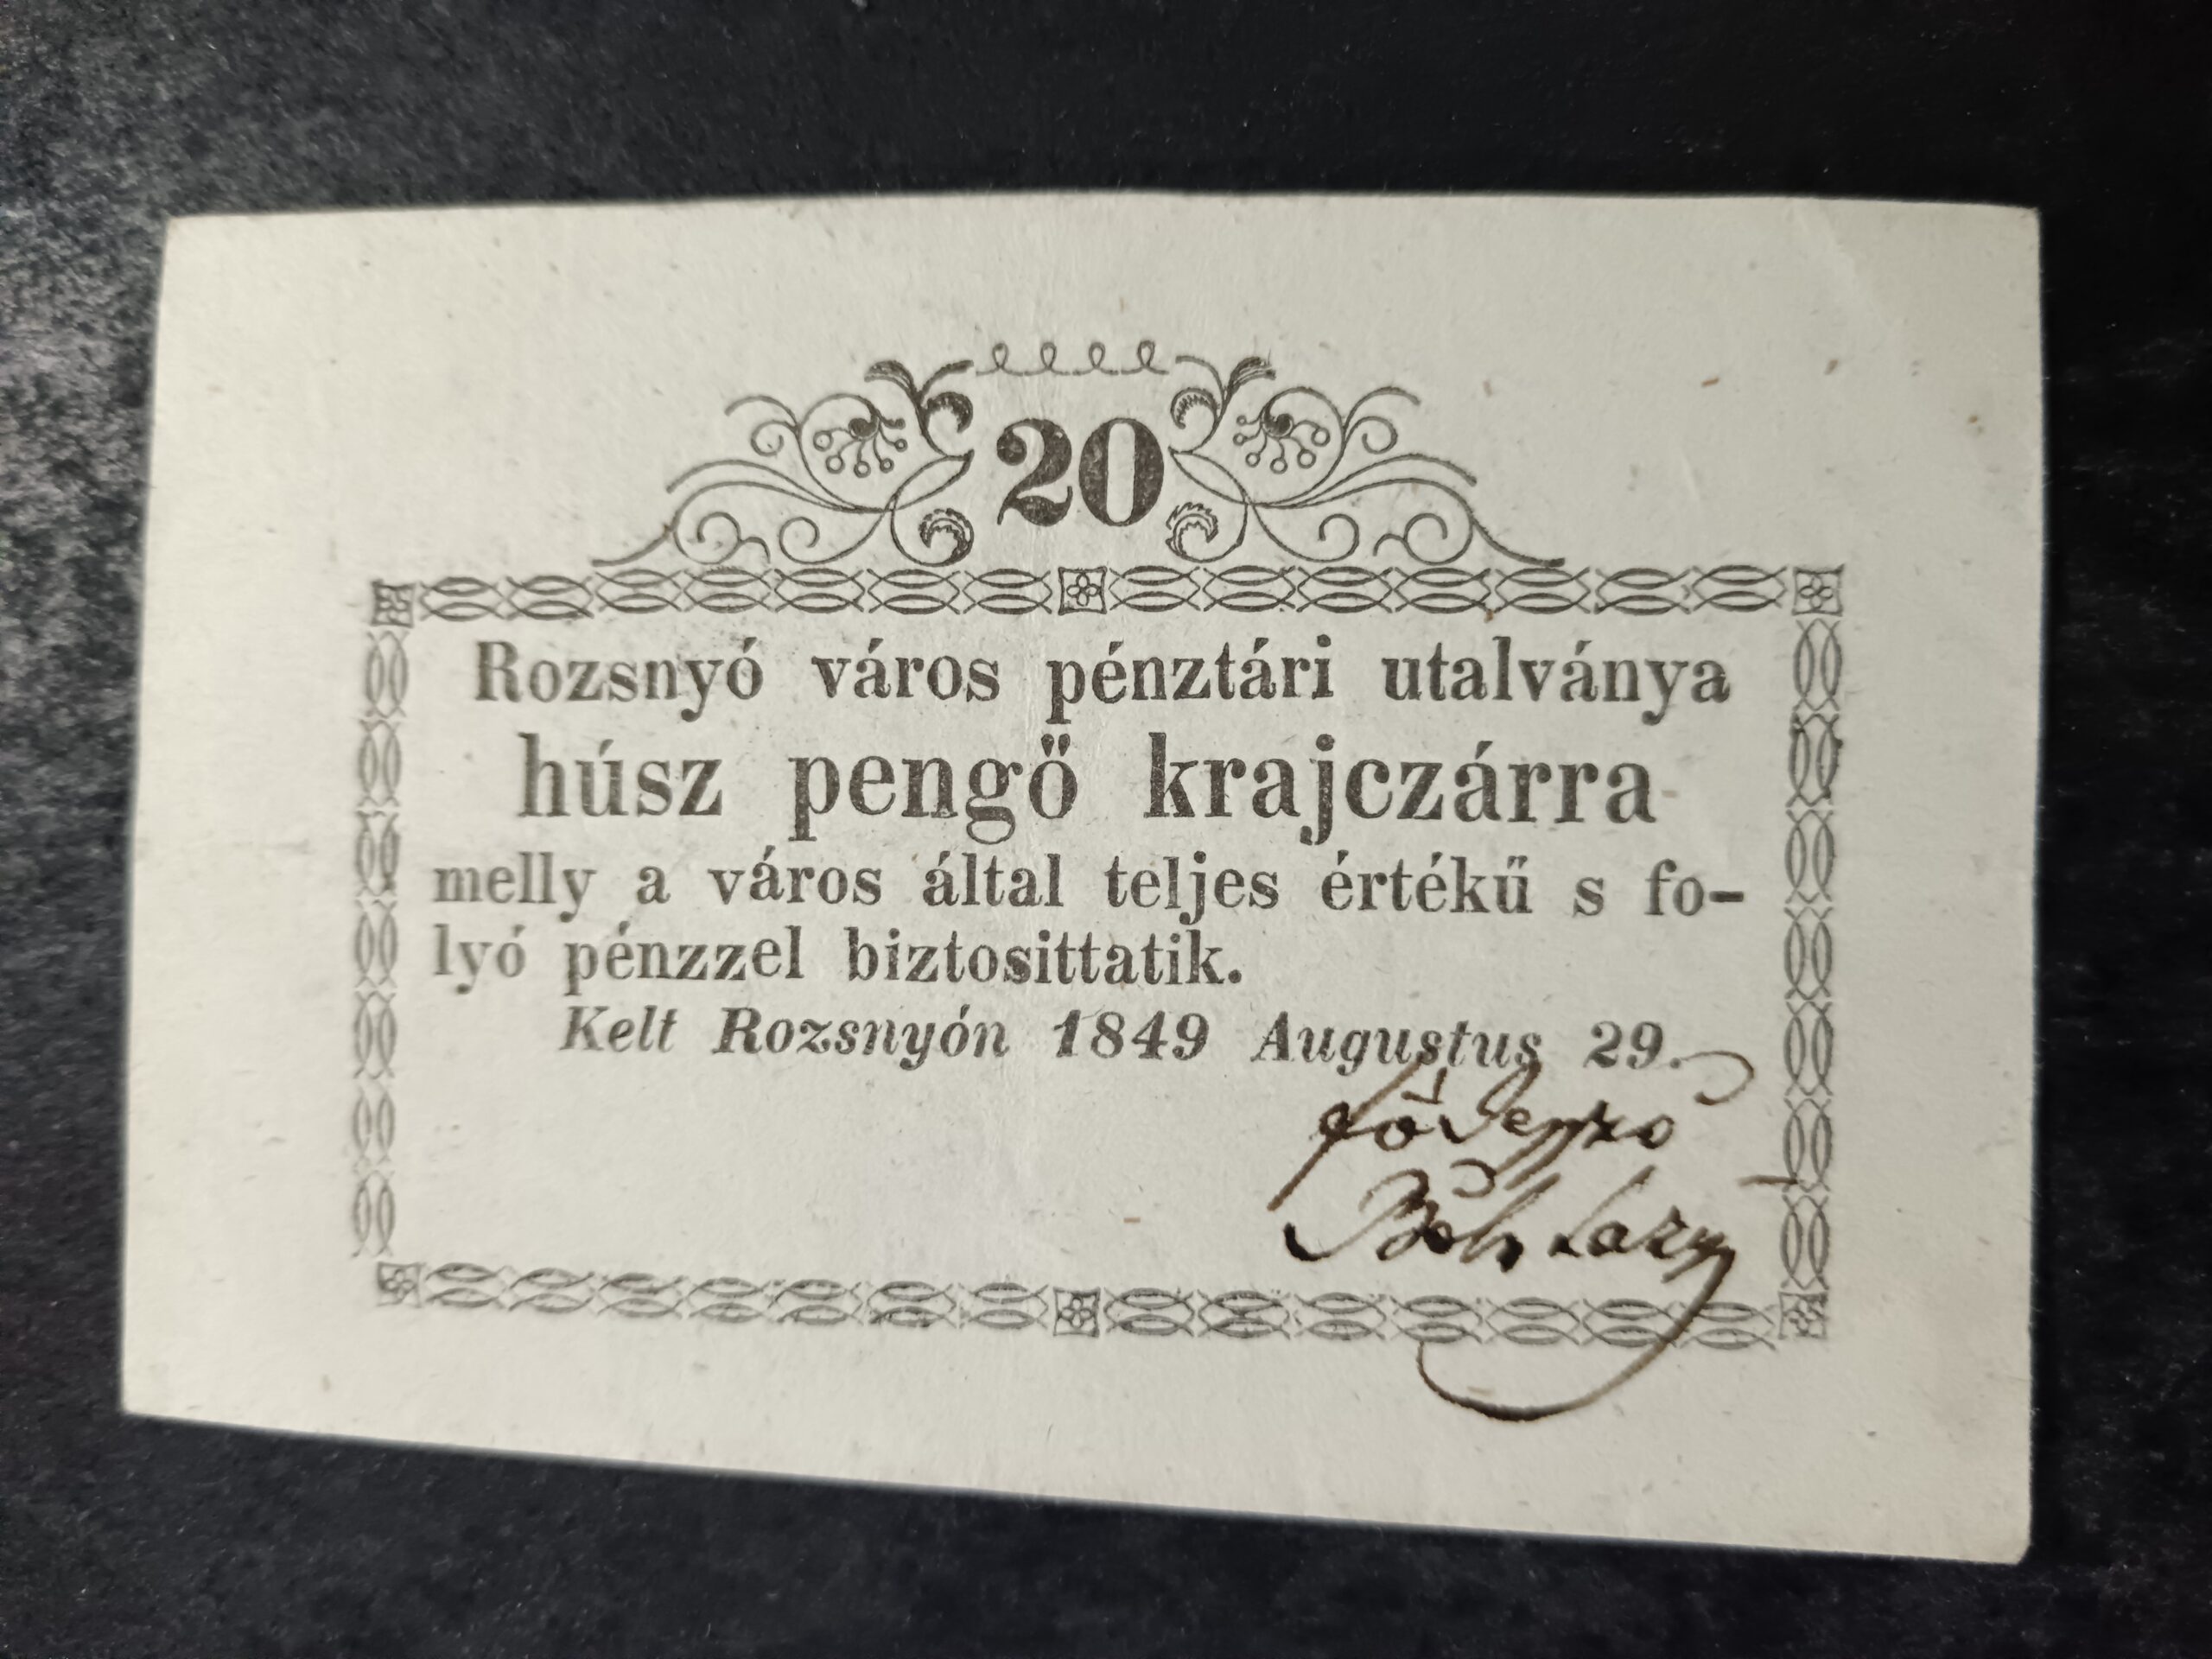 20
Rozsnyó város pénztári utalványa
húsz pengő krajczárra
melly a város által teljes értékű s fo-
lyó pénzzel biztosittatik.
Kelt Rozsnyón 1849 Augustus 29.